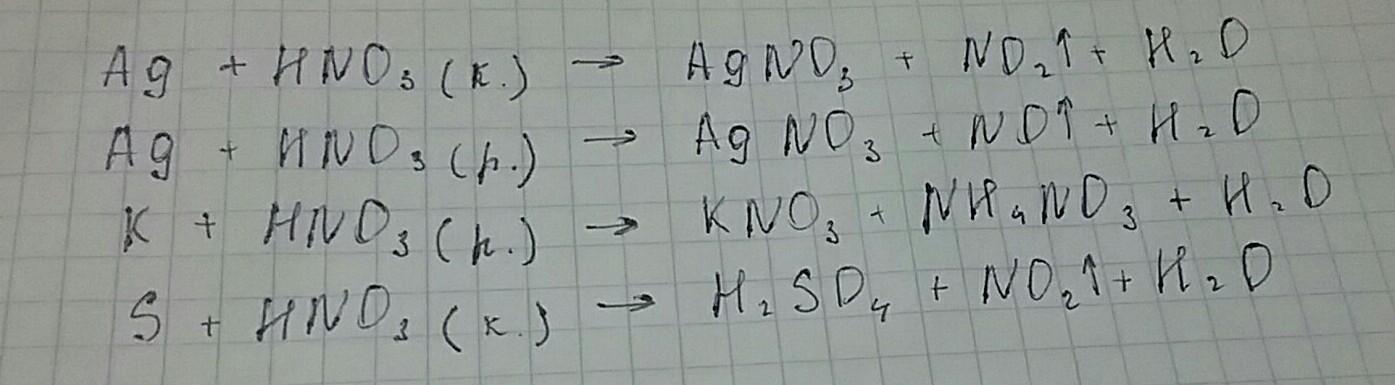 Ag + HNO₃ (к.) → AgNO₃ + NO₂↑ + H₂O
Ag + HNO₃ (р.) → AgNO₃ + NO↑ + H₂O
K + HNO₃ (р.) → KNO₃ + NH₄NO₃ + H₂O
S + HNO₃ (к.) → H₂SO₄ + NO₂↑ + H₂O